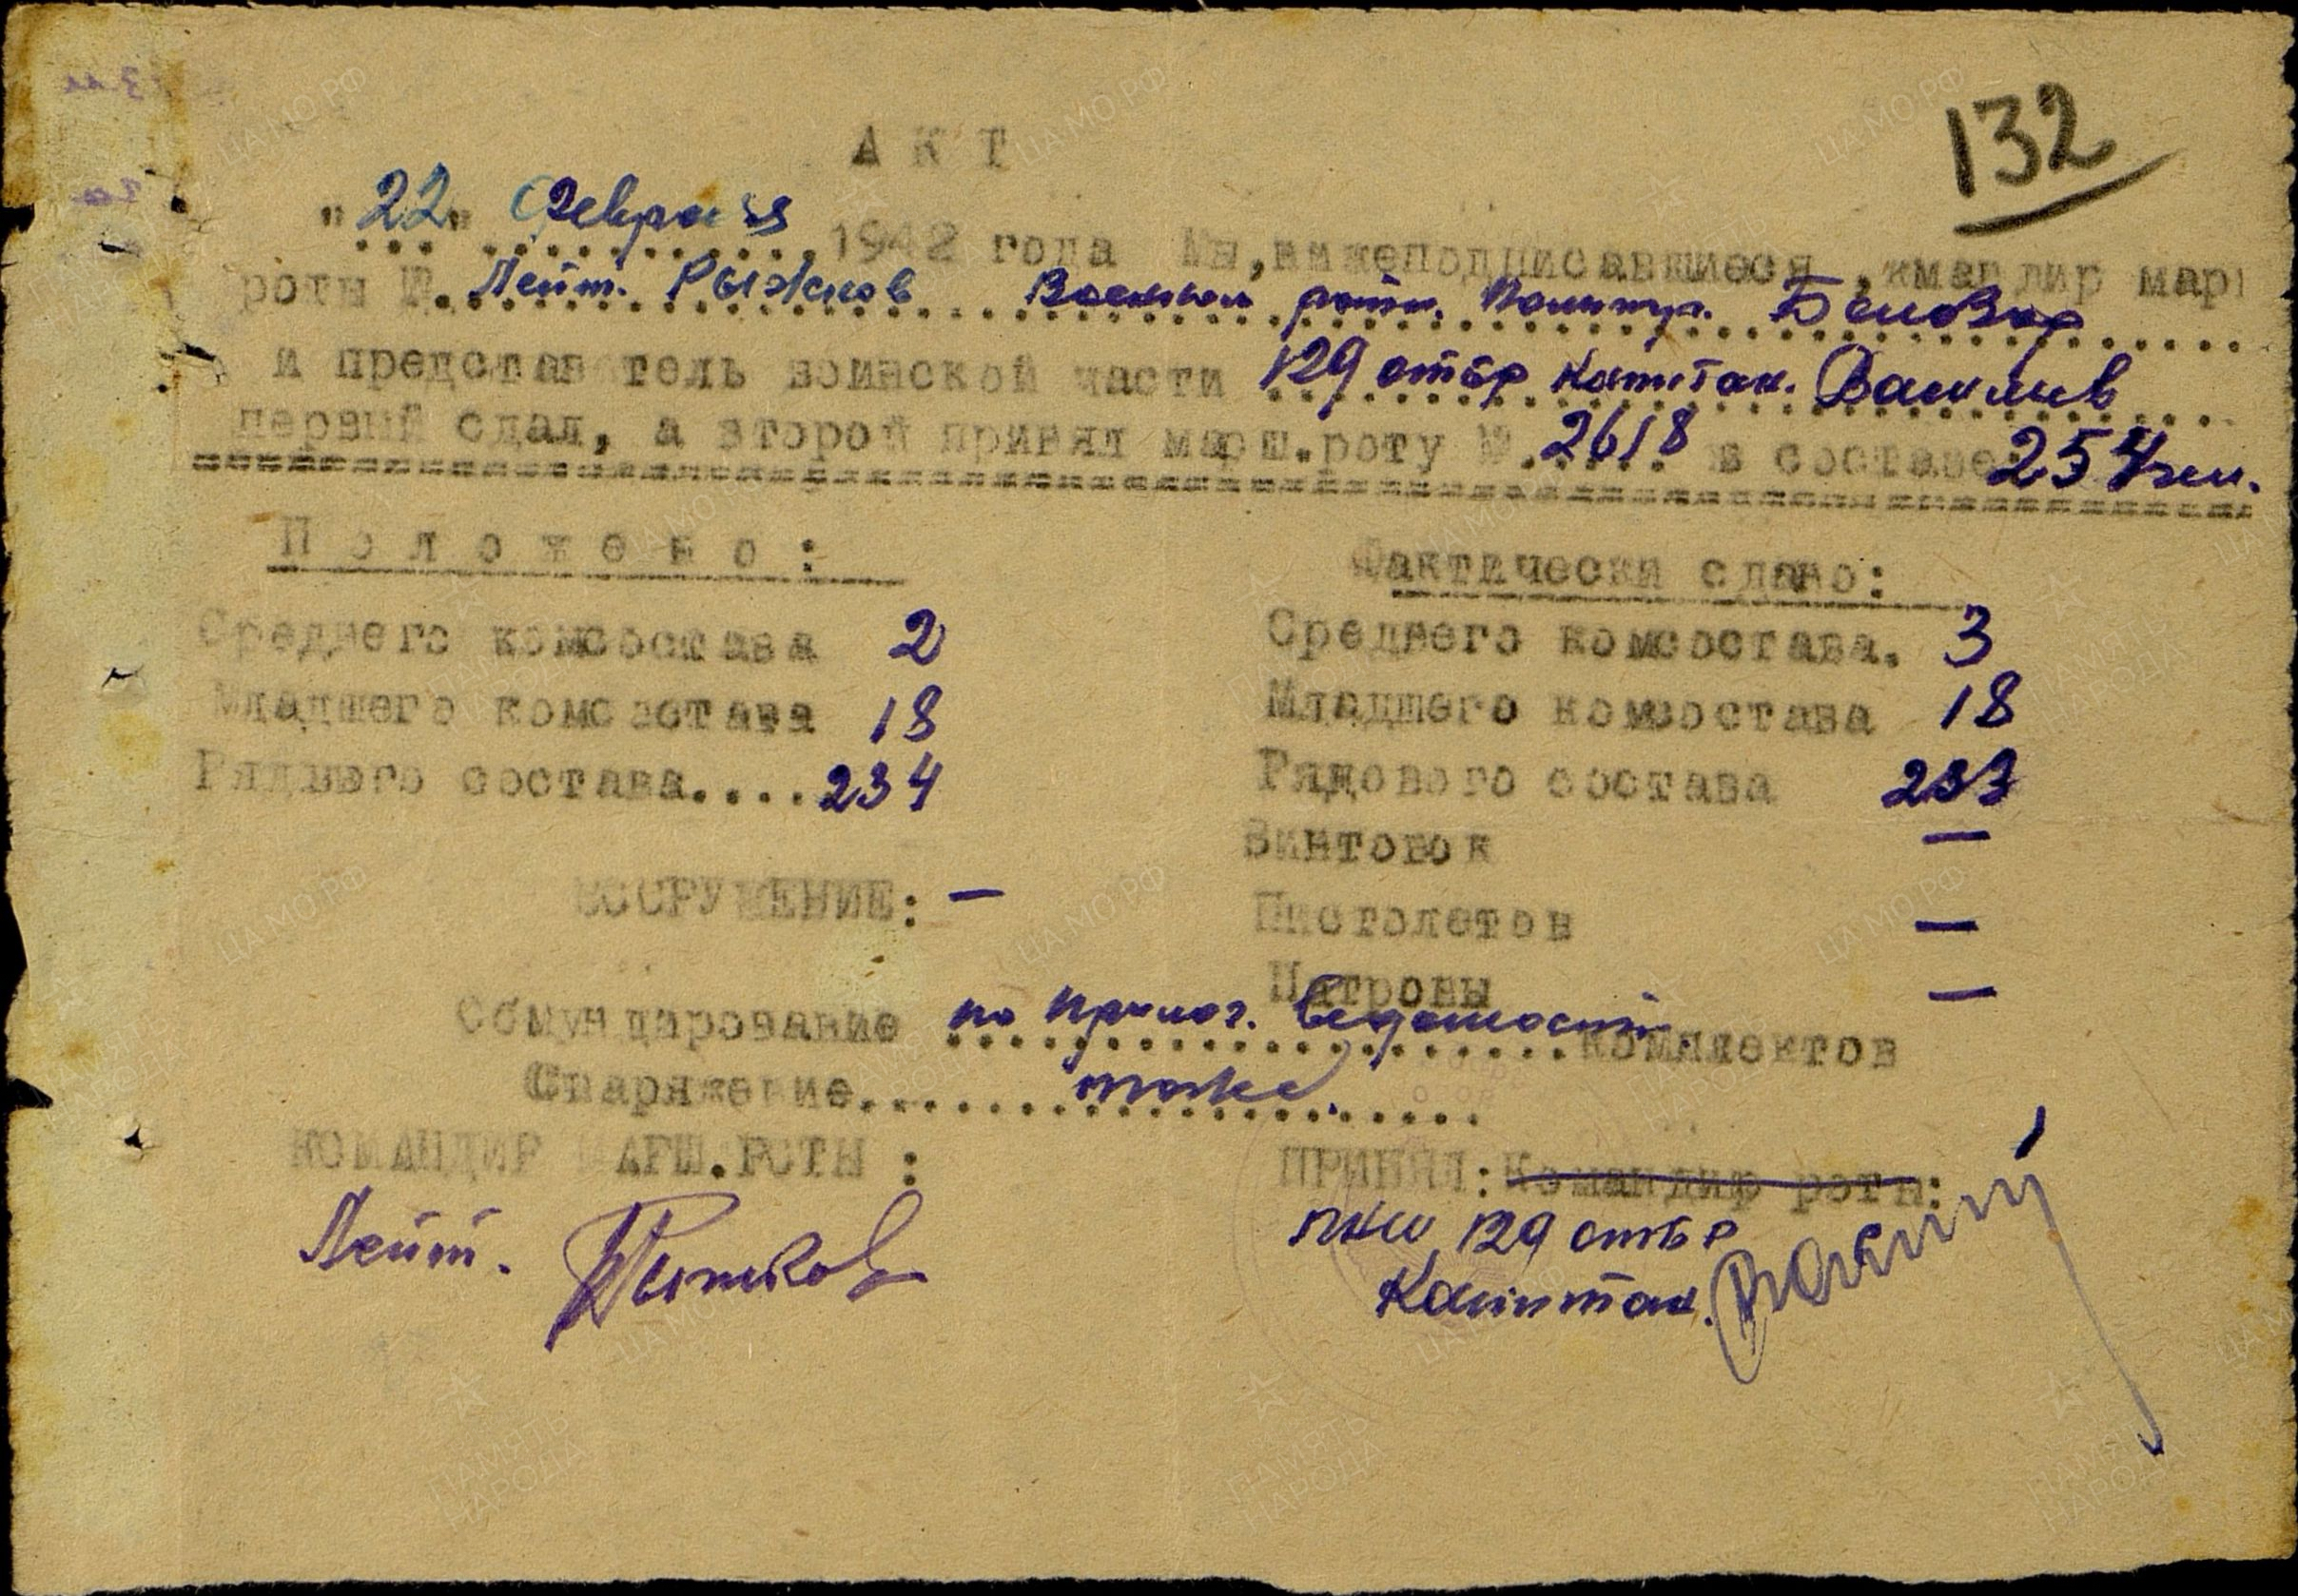 132
А К Т
"22" Февраля 1942 года Мы, нижеподписавшиеся, кмандир мар
роты № Лейт. Рыжков Военком роты, Политр. Беловор
и представитель воинской части 129 отбр Капитан. Василив
первый сдал, а второй принял марш.роту № 2618 в составе 254 чел.
П о л о ж е н о :
Фактически сдано:
Среднего комсостава 2
Среднего комсостава. 3
Младшего комсостава 18
Младшего комсостава 18
Ряднего состава....234
Рядового состава 233
Винтовок —
ВООРУЖЕНИЕ: —
Пистолетов —
Патроны —
Обмундирование по прилог. ведомости комплектов
Снаряжение тоже.
КОМАНДИР МАРШ.РОТЫ :
ПРИНЯЛ: Командир роты:
Лейт. Рыжков
пнш 129 отбр
Капитан.